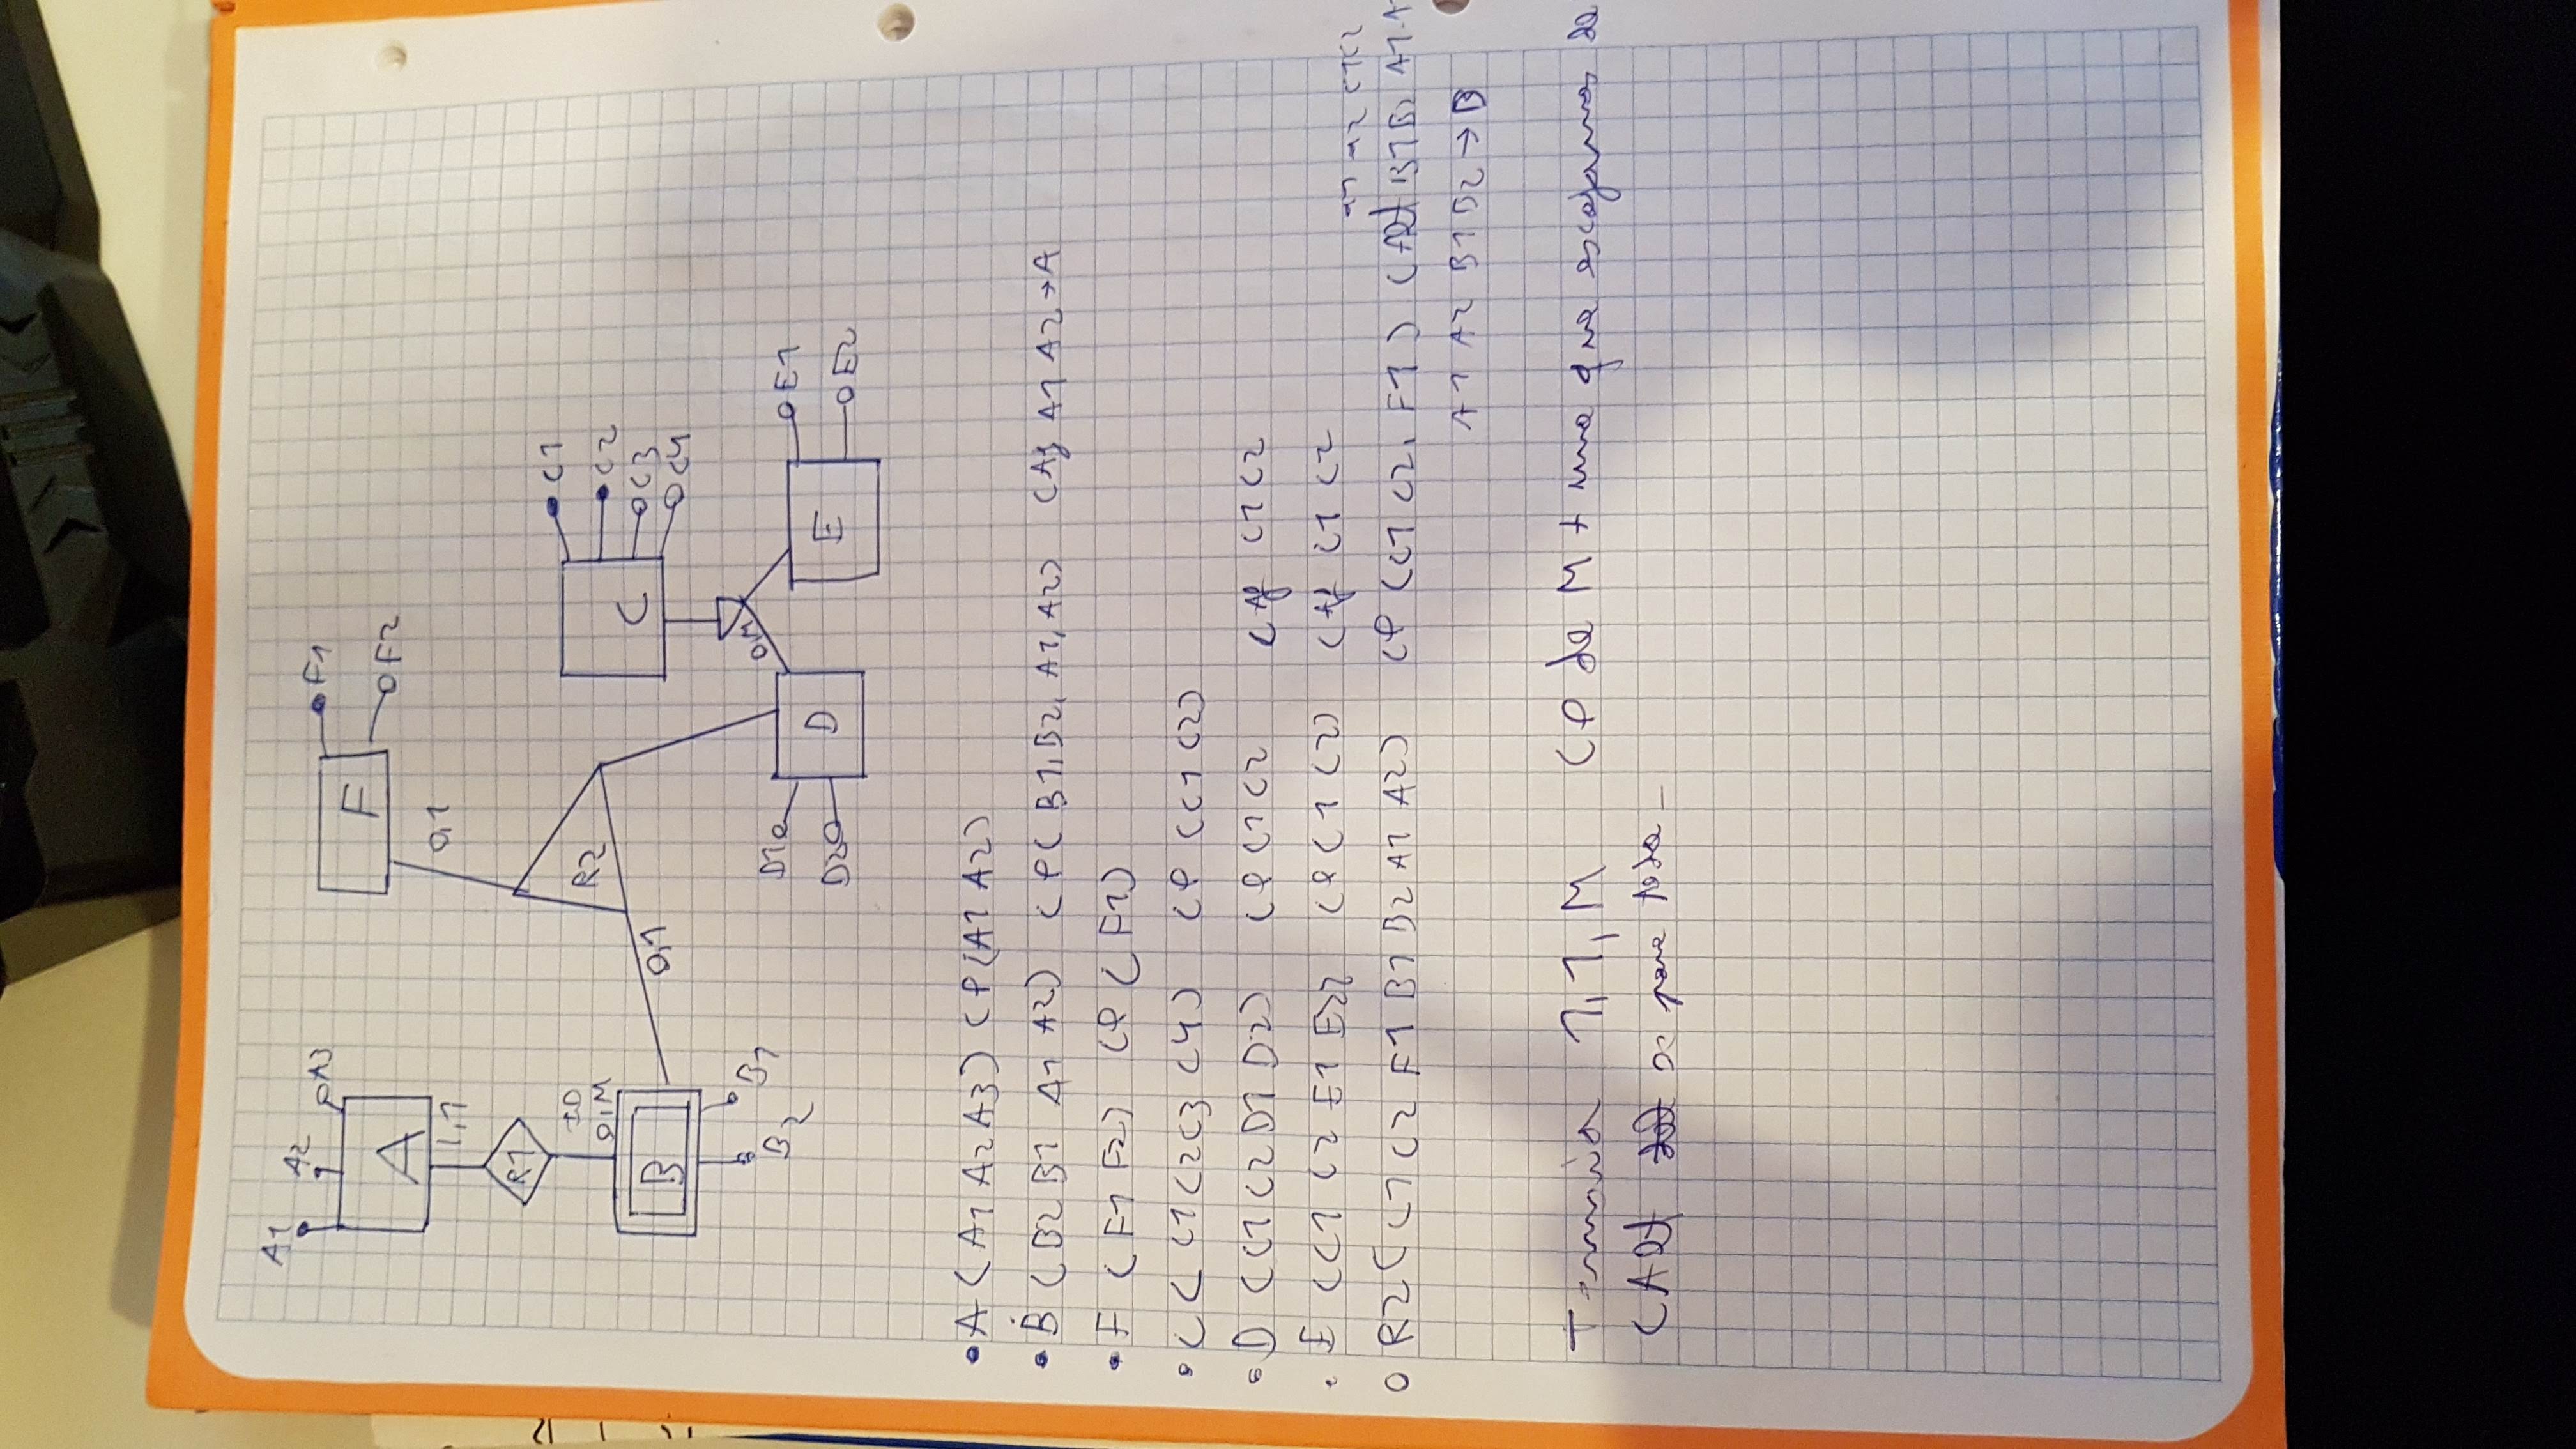 A1
A2
A3
A
1,1
R1
ID
0,M
B
B1
B2
F
F1
F2
0,1
R2
0,1
C
C1
C2
C3
C4
0,M
D1
D2
D
E
E1
E2
A (A1 A2 A3) CP(A1 A2)
B (B2 B1 A1 A2) CP(B1, B2, A1, A2) CAj A1 A2 → A
F (F1 F2) CP (F1)
C ( C1 C2 C3 C4) CP (C1 C2)
D (C1 C2 D1 D2) CP C1 C2 CAj C1 C2
E (C1 C2 E1 E2) CP C1 C2) CAj C1 C2
C1C2
R2 (C1 C2 F1 B1 B2 A1 A2) CP (C1 C2, F1) (CAlt B1 B2 A1
A1 A2 B1 B2 → B
1,1,M CP de M + una que escojamos de
CAlt